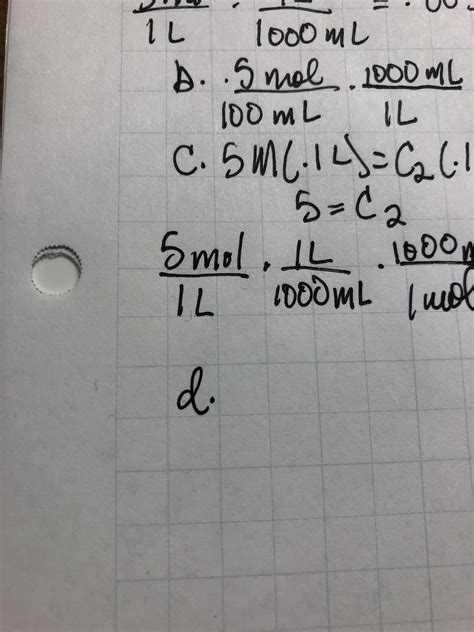 1L 1000mL = .00
b. .5 mol / 100 mL · 1000 mL / 1L
C. 5M(.1L)=C₂(.1
5=C₂
5mol / 1L · 1L / 1000mL · 1000 m / 1mol
d.